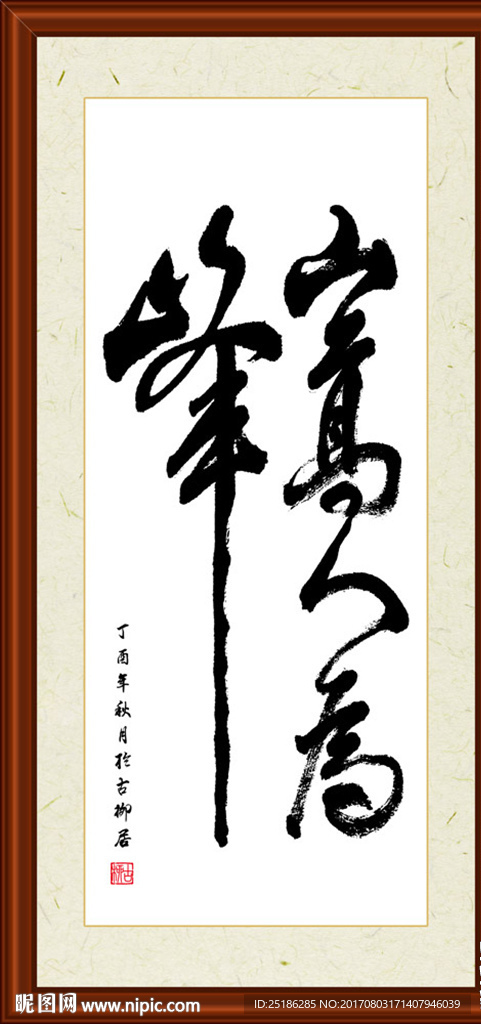 山高人為
峰
丁酉年秋月於古柳居
昵图网 www.nipic.com
ID:25186285 NO:20170803171407946039